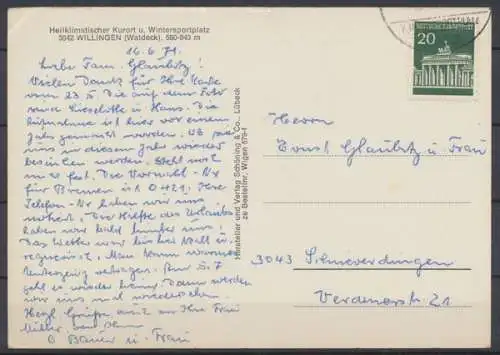 Heilklimatischer Kurort u. Wintersportplatz
3542 WILLINGEN (Waldeck), 560-843 m
16.6.71.
Liebe Fam. Glaubitz!
Vielen Dank für Ihre Karte
vom 23.5. Die auf dem Foto
sind Lieselotte u. Hans. Die
Aufnahme ist hier vor einem
Jahr gemacht worden. Ob sie
uns in diesem Jahr wieder
besuchen werden, steht noch
nicht fest. Die Vorwahl-Nr
für Bremen ist 0421. Ihre
Telefon-Nr haben wir uns
notiert. Die Hälfte des Urlaubs
haben wir bald hinter uns.
Das Wetter war bisher kalt u.
regnerisch. Man konnte warmes
vertragen. Am 5.7
geht es wieder heim. Dann werden
wir uns mal wiedersehen.
Herzl. Grüße auch an Ihre Frau
Mutter, von Ihrem
O Bauer u. Frau
Hersteller und Verlag Schöning & Co., Lübeck
Bestellnr. Wigen 575
DEUTSCHE BUNDESPOST
20
Herrn
Ernst Glaubitz u Frau
3043 Schneverdingen
Verdenerstr. 21